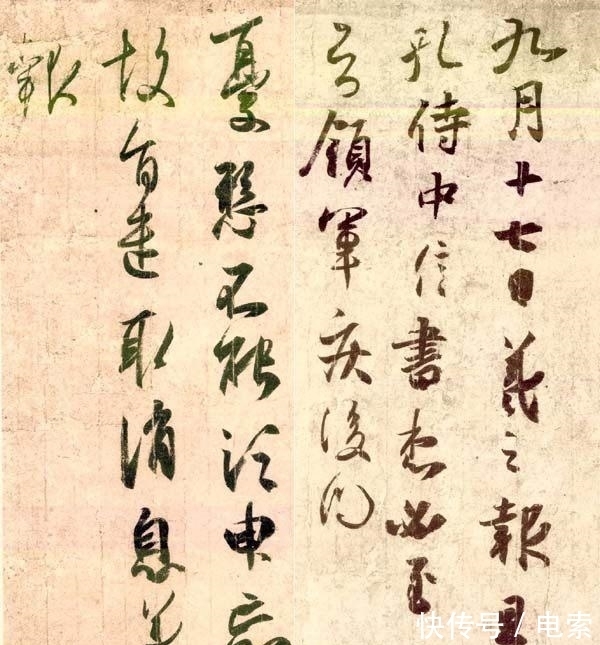 九月十七日羲之報且
孔侍中信書想必至
知領軍疾後問
憂懸不能須臾忘
故旨遣取消息羲
報
快传号 / 电索